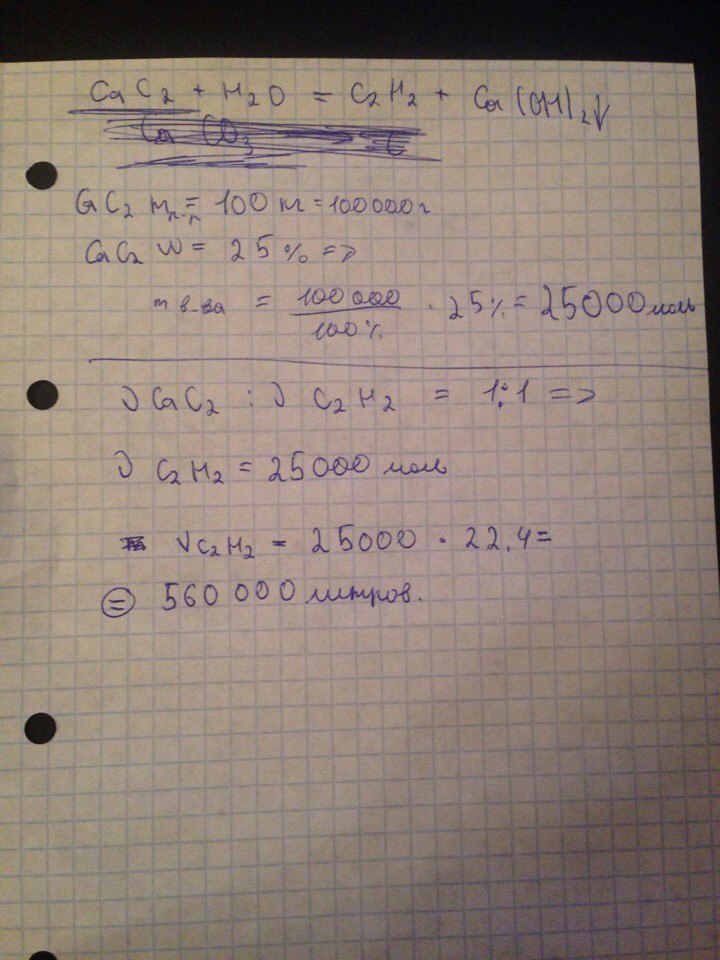 CaC₂ + H₂O = C₂H₂ + Ca(OH)₂↓
CaCO₃
CaC₂ mₚ.ₚ = 100 кг = 100000 г
CaC₂ W = 25% =>
m в-ва = 100000 / 100% · 25% = 25000 моль
ν CaC₂ : ν C₂H₂ = 1:1 =>
ν C₂H₂ = 25000 моль
V C₂H₂ = 25000 · 22,4 =
= 560 000 литров.